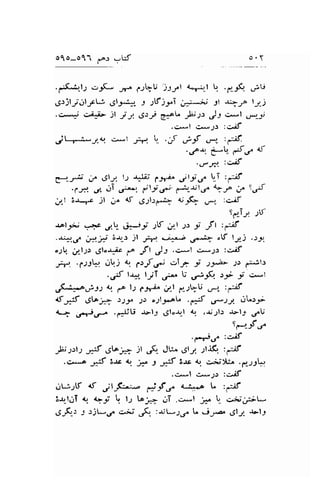 ۵۰۲ کتاب دهم ۵۹۶-۵۹۵
فاش بگویم. با اینهمه امروز ناچارم مهر سکوت را بشکنم.
زیرا هرچند او نخستین آموزگار و پیشوای شاعران تراژدی
نویس است ولی در نظر ما هیچ فردی برتر از حقیقت نیست.
گفت: درست است.
گفتم: پس گوش کن. یا بهتر است به پرسشهائی
که می‌کنم پاسخ بدهی.
گفت: بپرس.
گفتم: آیا می‌توانی مفهوم تقلید را برای من تشریح
کنی؟ من هرچه می‌اندیشم نمی‌توانم بمعنی آن پی ببرم.
گفت: پس چگونه چشم‌داری که من از عهدهٔ این
کار برآیم؟
گفتم: اگر تو در این کار توفیق یابی عجب نخواهد
بود. زیرا گاه چشمی ضعیف بهتر از دیدهٔ تیزبین می‌بیند.
گفت: درست است. ولی اگر هم عقیده‌ای در این باره
داشتم در حضور تو جرأت نمی‌کردم به زبان بیاورم. بهتر
است تو خود بکوشی تا معنی آنرا پیدا کنی.
گفتم: پس ناچاریم این مفهوم را به روش همیشگی
خودمان بررسی کنیم. ما همواره در مورد چیزهای کثیر که
نامی واحد دارند، به ایده‌ای واحد قائلیم. می‌فهمی چه
می‌گویم؟
گفت: می‌فهمم.
گفتم: بگذار برای مثال یکی از چیزهای کثیر را در نظر
بیاوریم. مثلا تخت به عدهٔ کثیر و میز به عدهٔ کثیر هست.
گفت: درست است.
گفتم: ما همیشه می‌گوئیم صنعتگرانی که کارشان
ساختن تخت یا میز است. آن چیزها را با توجه به آن ایدهٔ
واحد برای مصرف ما می‌رسانند: یکی تخت می‌سازد و دیگری